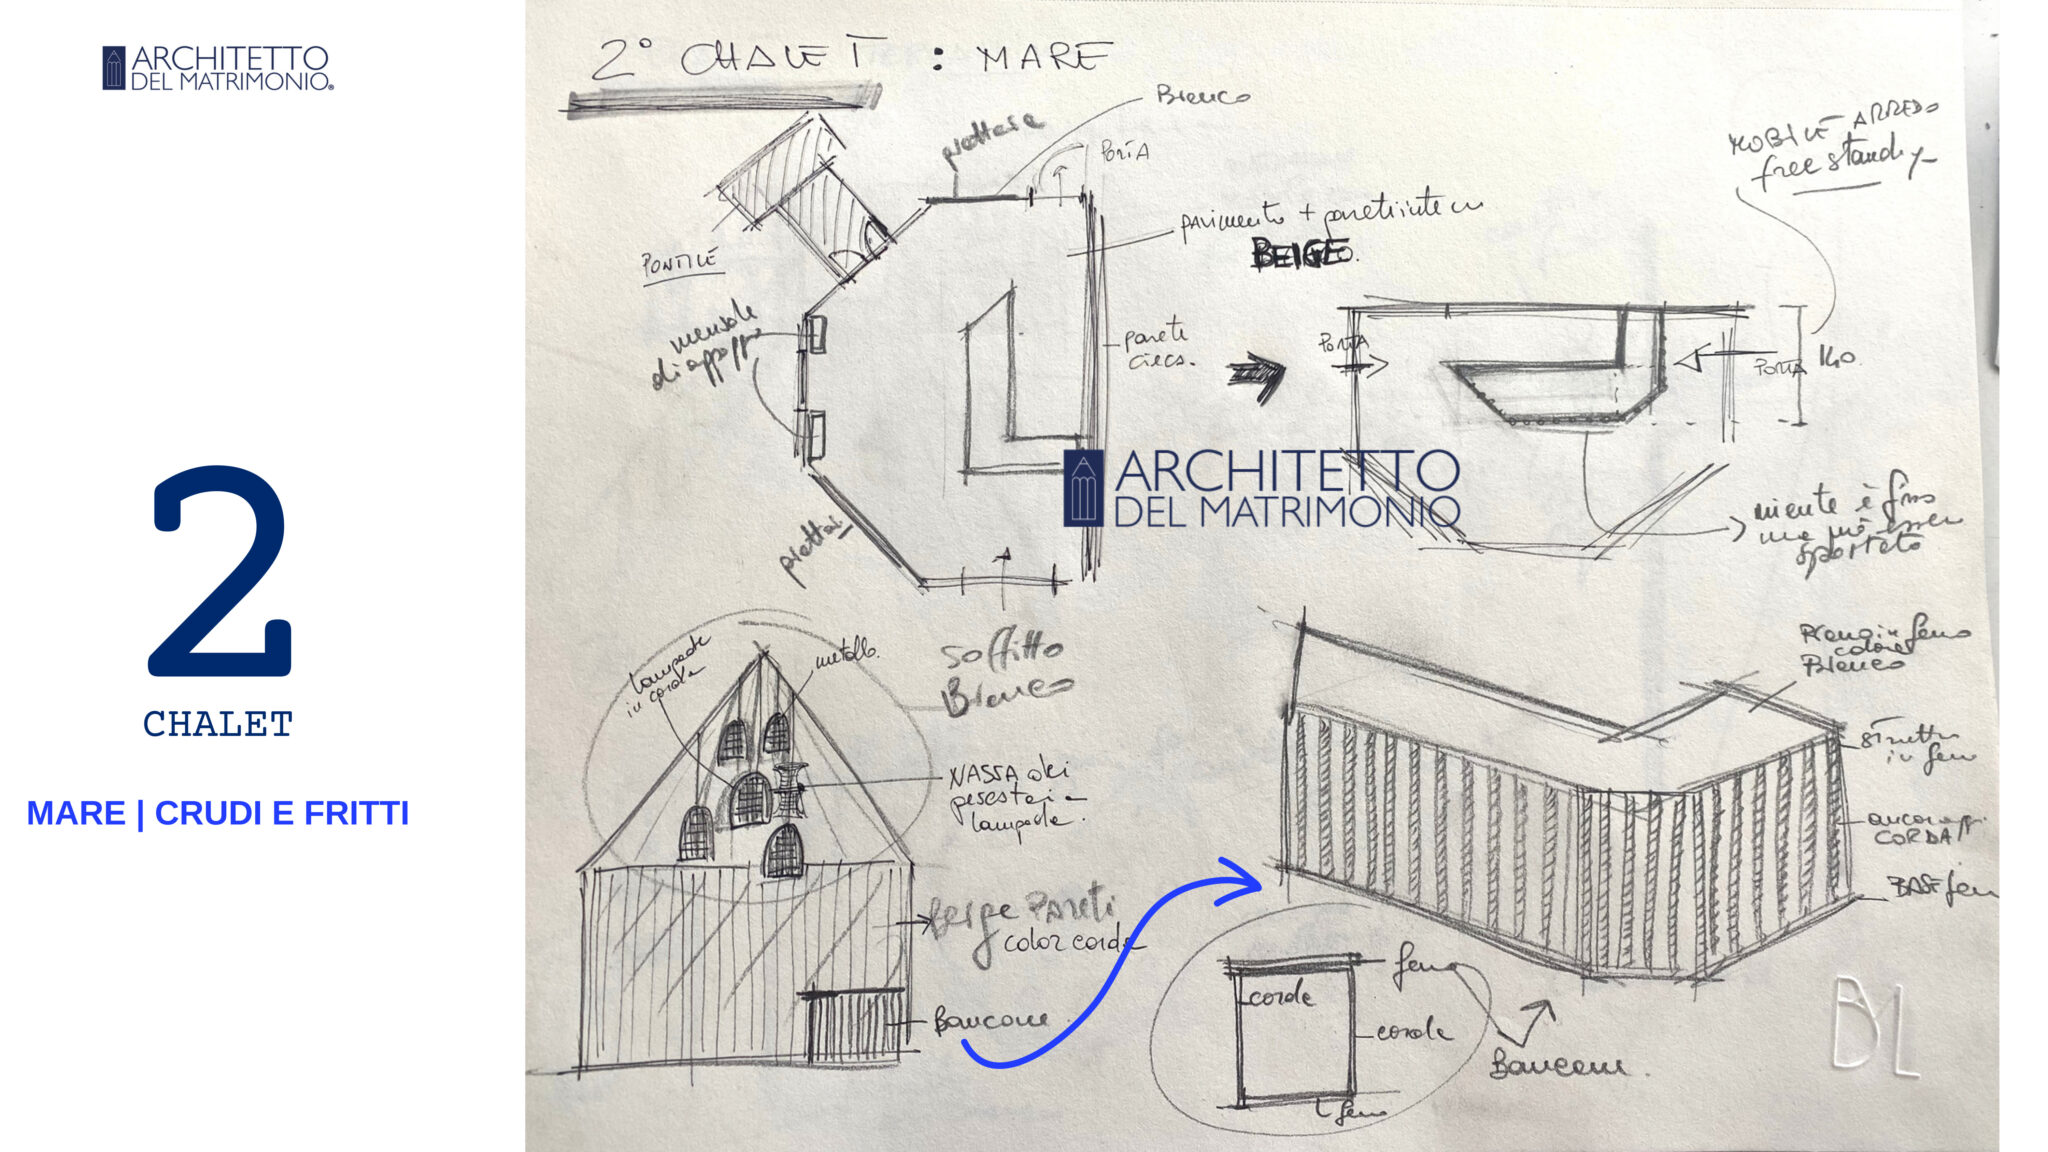 ARCHITETTO
DEL MATRIMONIO®
2
CHALET
MARE | CRUDI E FRITTI
2° CHALET : MARE
Bianco
PORTA
PONTILE
mensole
di appoggio
pavimento + pareti intern
BEIGE
parete
cieca.
MOBILE ARREDO
free standy
PORTA
PORTA
140
ARCHITETTO
DEL MATRIMONIO
niente è fisso
ma può esser
spostato
lampade
in corda
metallo.
soffitto
Bianco
NASSA dei
pescatori a
lampada.
Beige Pareti
color corda
Bancone
Piano in ferro
colore
Bianco
struttu
in ferro
ancoraggi
CORDA
BASE ferro
ferro
corde
corde
ferro
Bancone.
BML